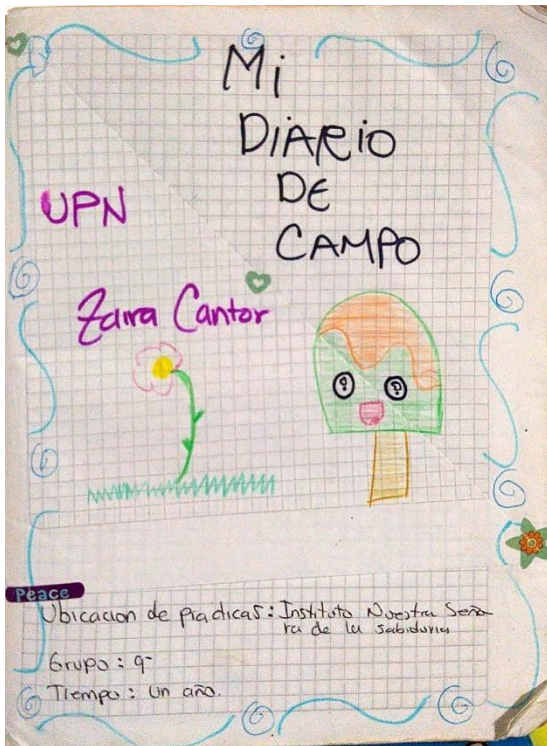 Mi
DIARIO
DE
CAMPO
UPN
Zaira Cantor
Peace
Ubicacion de practicas: Instituto Nuestra Seño-
ra de la sabiduria
Grupo: 9-
Tiempo: Un año.